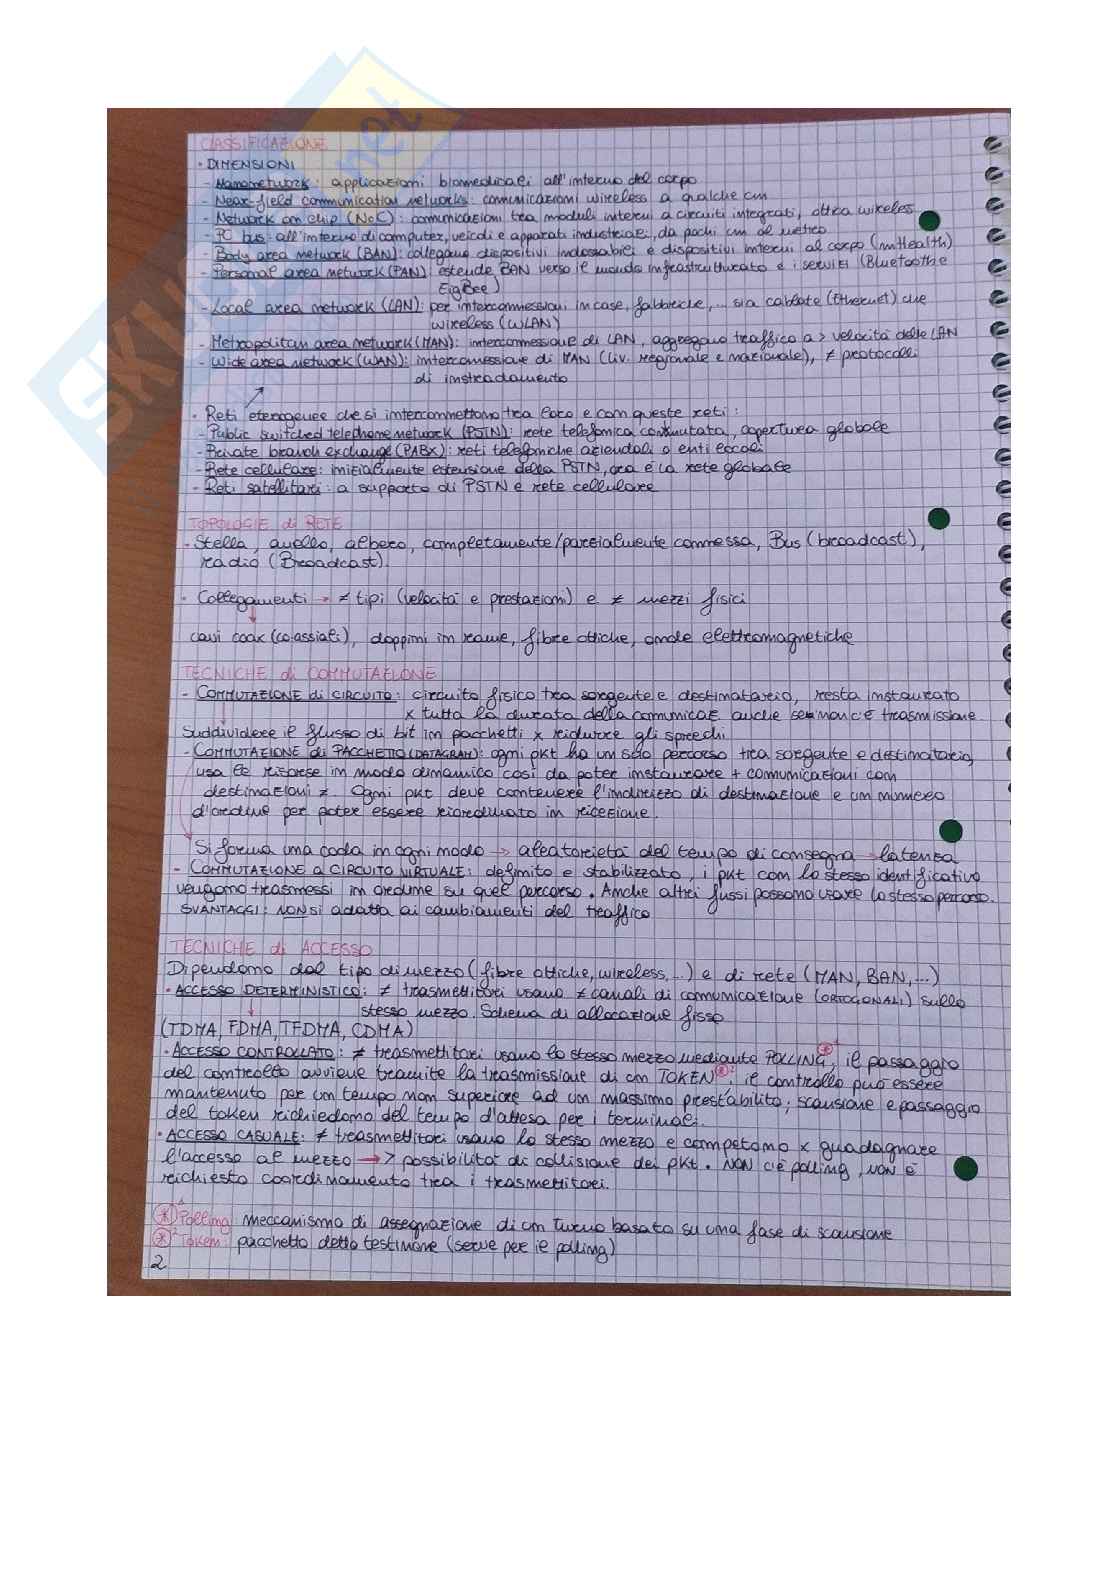 SKUOLA.net
CLASSIFICAZIONE
• DIMENSIONI
- Nanonetwork: applicazioni biomedicali all'interno del corpo
- Near-field communication networks: comunicazioni wireless a qualche cm
- Network on chip (NoC): comunicazioni tra moduli interni a circuiti integrati, ottica wireless
- PC bus: all'interno di computer, veicoli e apparati industriali, da pochi cm al metro
- Body area network (BAN): collegano dispositivi indossabili e dispositivi interni al corpo (mHealth)
- Personal area network (PAN): estende BAN verso il mondo infrastrutturato e i servizi (Bluetooth e
ZigBee)
- Local area network (LAN): per interconnessioni in case, fabbriche,... sia cablate (Ethernet) che
wireless (WLAN)
- Metropolitan area network (MAN): interconnessione di LAN, aggregano traffico a > velocità delle LAN
- Wide area network (WAN): interconnessione di MAN (liv. regionale e nazionale), ≠ protocolli
di instradamento
• Reti eterogenee che si interconnettono tra loro e con queste reti:
- Public switched telephone network (PSTN): rete telefonica commutata, copertura globale
- Private branch exchange (PABX): reti telefoniche aziendali o enti locali
- Rete cellulare: inizialmente estensione della PSTN, ora è la rete globale
- Reti satellitari: a supporto di PSTN e rete cellulare
TOPOLOGIE di RETE
- Stella, anello, albero, completamente/parzialmente connessa, Bus (broadcast),
radio (Broadcast).
- Collegamenti → ≠ tipi (velocità e prestazioni) e ≠ mezzi fisici
cavi coax (coassiali), doppini in rame, fibre ottiche, onde elettromagnetiche
TECNICHE di COMMUTAZIONE
- COMMUTAZIONE di CIRCUITO: circuito fisico tra sorgente e destinatario, resta instaurato
x tutta la durata della comunicaz. anche se non c'è trasmissione
Suddividere il flusso di bit in pacchetti x ridurre gli sprechi
- COMMUTAZIONE di PACCHETTO (DATAGRAM): ogni pkt ha un solo percorso tra sorgente e destinatario,
usa le risorse in modo dinamico così da poter instaurare + comunicazioni con
destinazioni ≠. Ogni pkt deve contenere l'indirizzo di destinazione e un numero
d'ordine per poter essere riordinato in ricezione.
Si forma una coda in ogni nodo → aleatorietà del tempo di consegna → latenza
- COMMUTAZIONE a CIRCUITO VIRTUALE: definito e stabilizzato, i pkt con lo stesso identificativo
vengono trasmessi in ordine su quel percorso. Anche altri flussi possono usare lo stesso percorso.
SVANTAGGI: NON si adatta ai cambiamenti del traffico
TECNICHE di ACCESSO
Dipendono dal tipo di mezzo (fibre ottiche, wireless,...) e di rete (MAN, BAN,...)
• ACCESSO DETERMINISTICO: ≠ trasmettitori usano ≠ canali di comunicazione (ORTOGONALI) sullo
stesso mezzo. Schema di allocazione fisso
(TDMA, FDMA, TFDMA, CDMA)
• ACCESSO CONTROLLATO: ≠ trasmettitori usano lo stesso mezzo mediante POLLING*1, il passaggio
del controllo avviene tramite la trasmissione di un TOKEN*2, il controllo può essere
mantenuto per un tempo non superiore ad un massimo prestabilito; scansione e passaggio
del token richiedono del tempo d'attesa per i terminali.
• ACCESSO CASUALE: ≠ trasmettitori usano lo stesso mezzo e competono x guadagnare
l'accesso al mezzo → > possibilità di collisione dei pkt. NON c'è polling, NON è
richiesto coordinamento tra i trasmettitori.
*1 Polling: meccanismo di assegnazione di un turno basato su una fase di scansione
*2 Token: pacchetto detto testimone (serve per il polling)
2